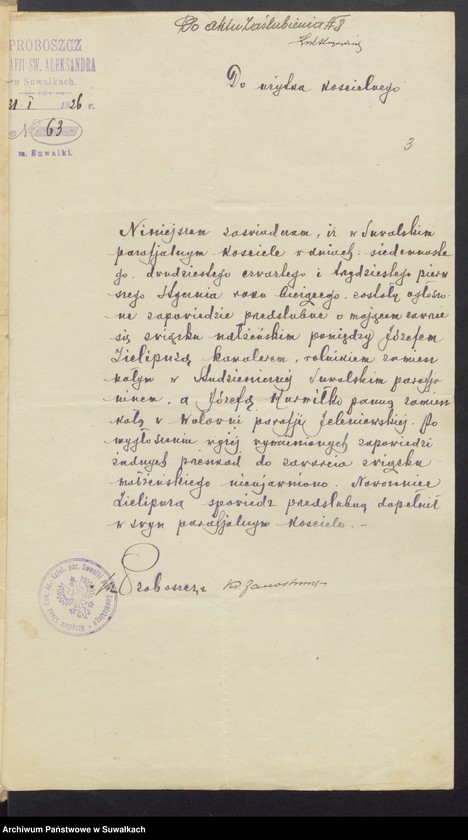 Do aktu Zaślubienia № 8
PROBOSZCZ
PARAFJI ŚW. ALEKSANDRA
w Suwałkach.
31 I 1926 r.
№ 63
m. Suwałki.
Do użytku kościelnego
3
Niniejszem zaświadczam, iż w Suwalskim
parafjalnym kościele w dniach: siedemnaste
go, dwudziestego czwartego i trzydziestego pierw
szego Stycznia roku bieżącego, zostały ogłoszo
ne zapowiedzie przedślubne o mającem zawrzeć
się związku małżeńskim pomiędzy Józefem
Zielipuzą kawalerem, rolnikiem zamiesz
kałym w Studzienicznej Suwalskim parafja
ninem, a Józefą Kurmiłko panną zamiesz
kałą w Walowni parafji Jeleniewskiej. Po
wygłoszeniu wyżej wymienionych zapowiedzi
żadnych przeszkód do zawarcia związku
małżeńskiego nieujawniono. Narzeczony
Zielipuza spowiedź przedślubną dopełnił
w swym parafjalnym kościele. –
Proboszcz